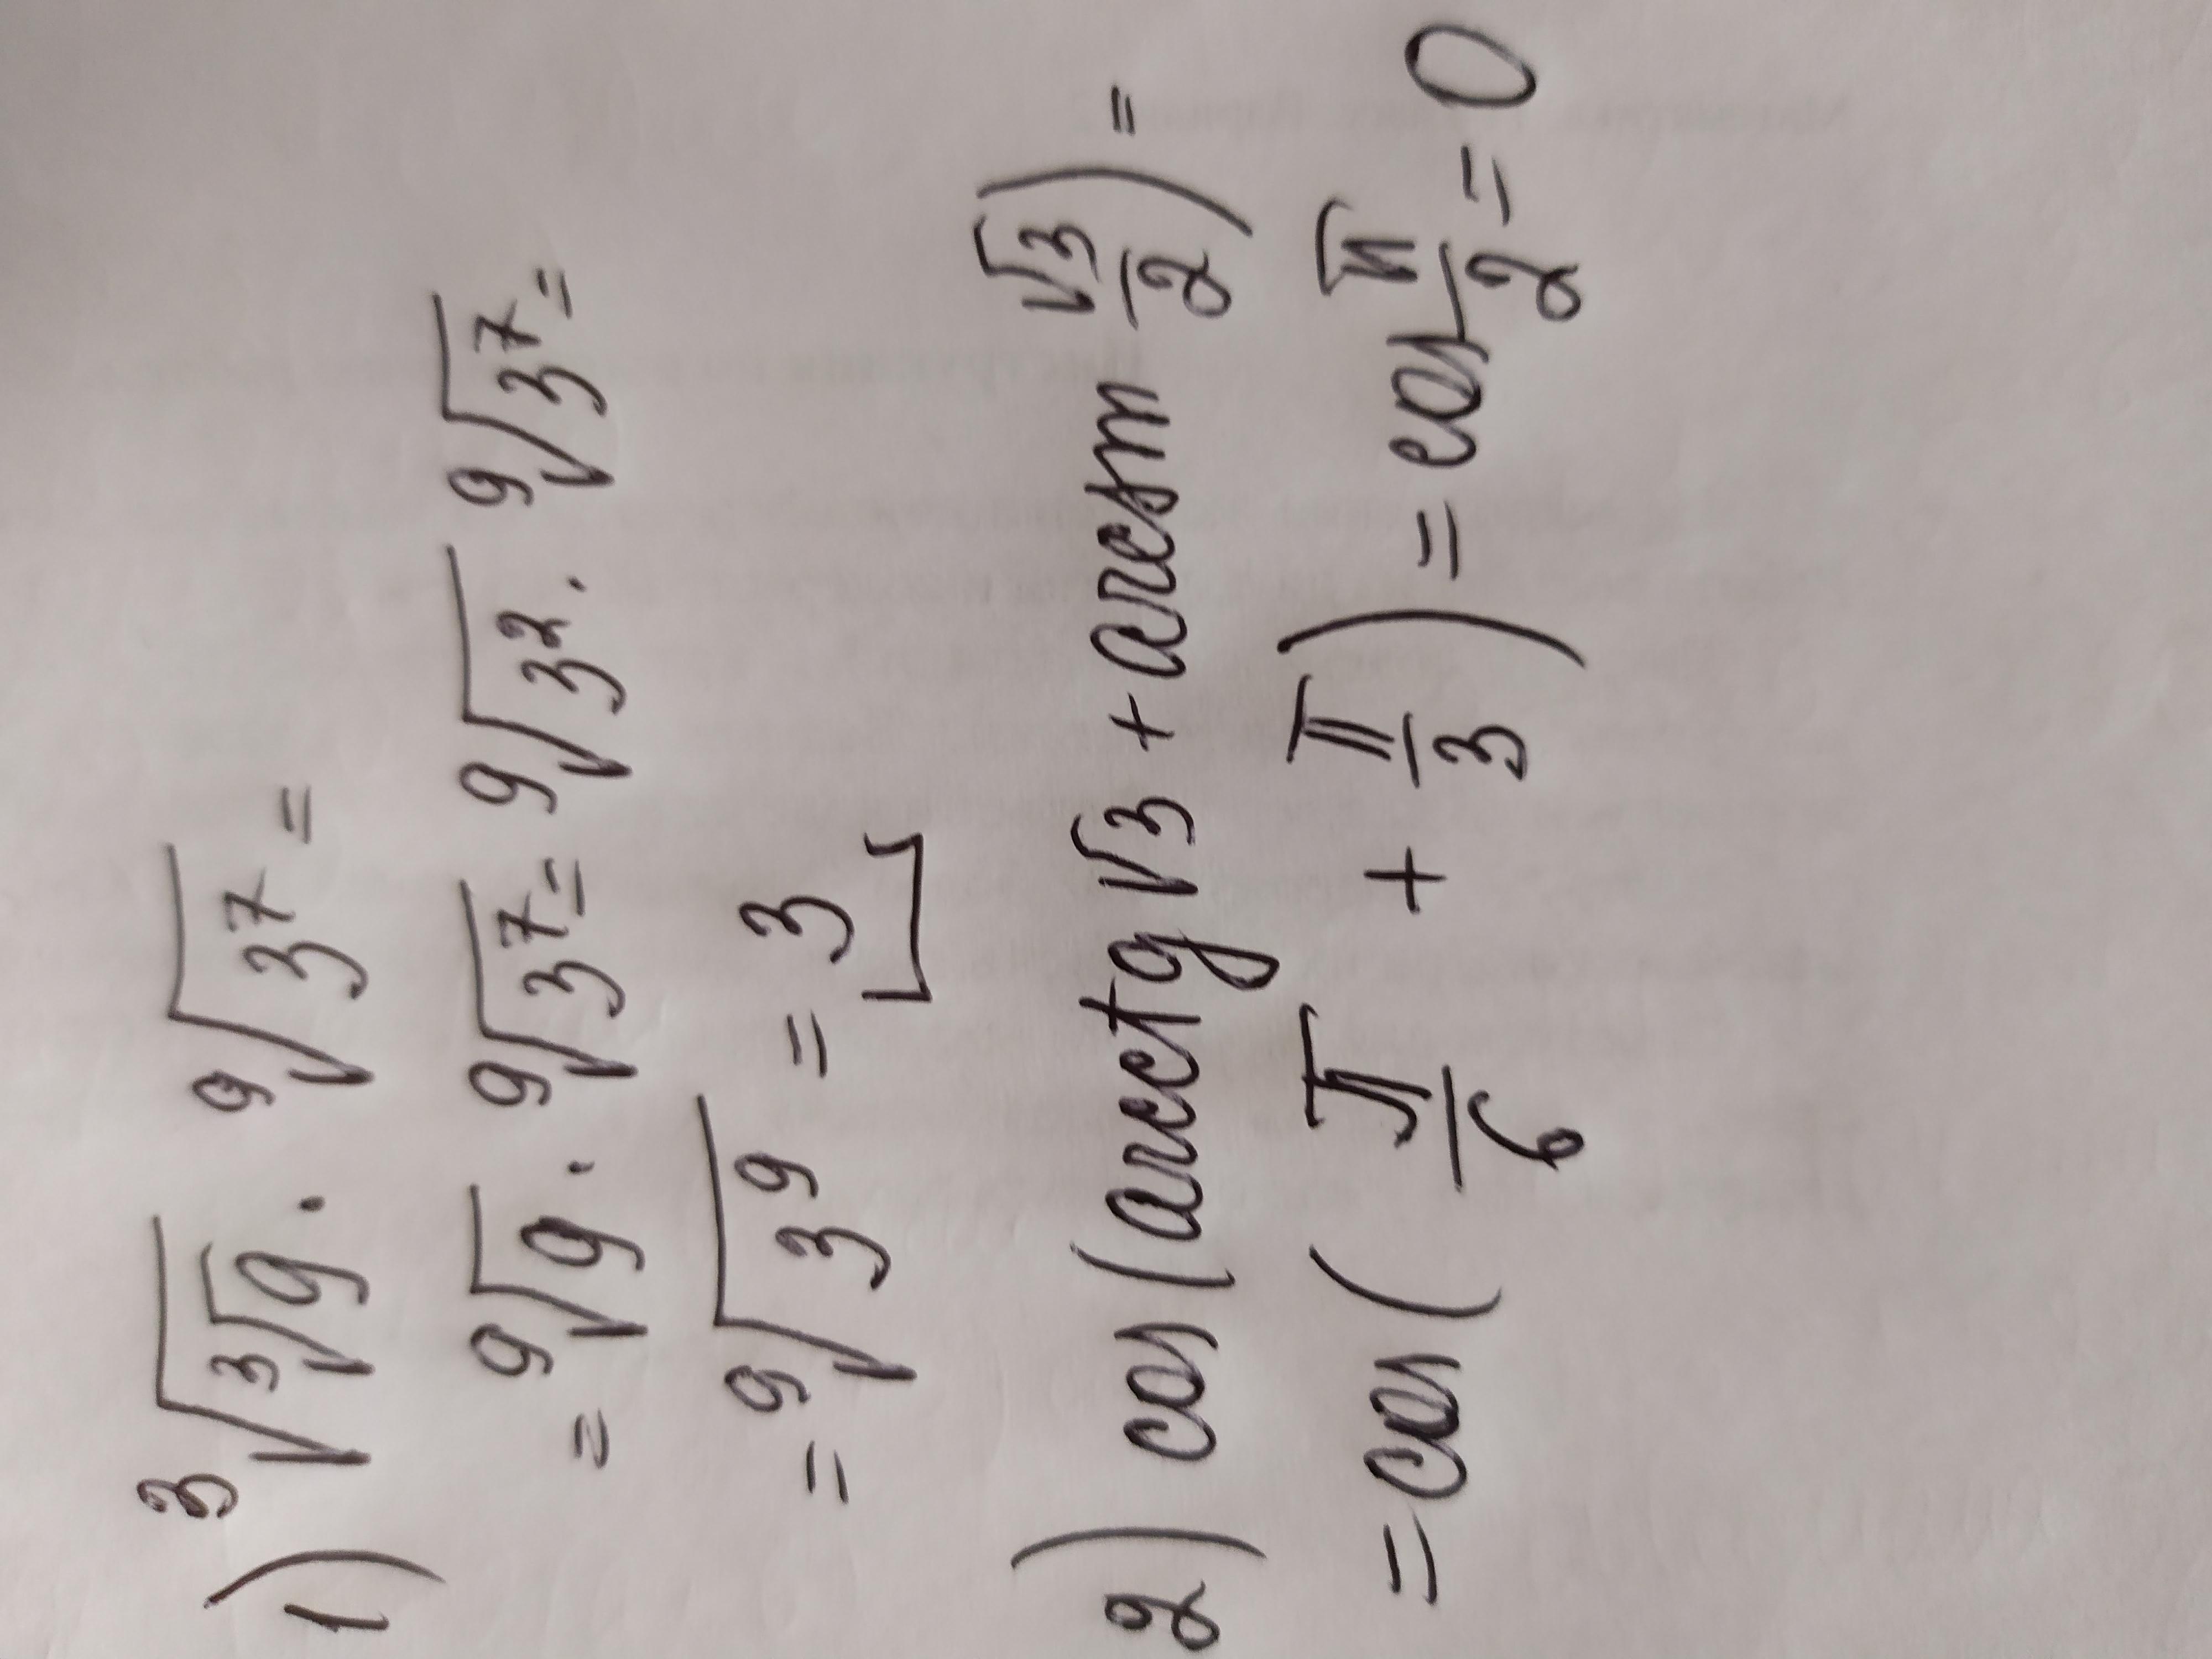 1) ³√(³√9) · ⁹√(3⁷) =
= ⁹√9 · ⁹√(3⁷) = ⁹√(3²) · ⁹√(3⁷) =
= ⁹√(3⁹) = 3
2) cos(arcctg √3 + arcsin √3/2) =
= cos(π/6 + π/3) = cos π/2 = 0